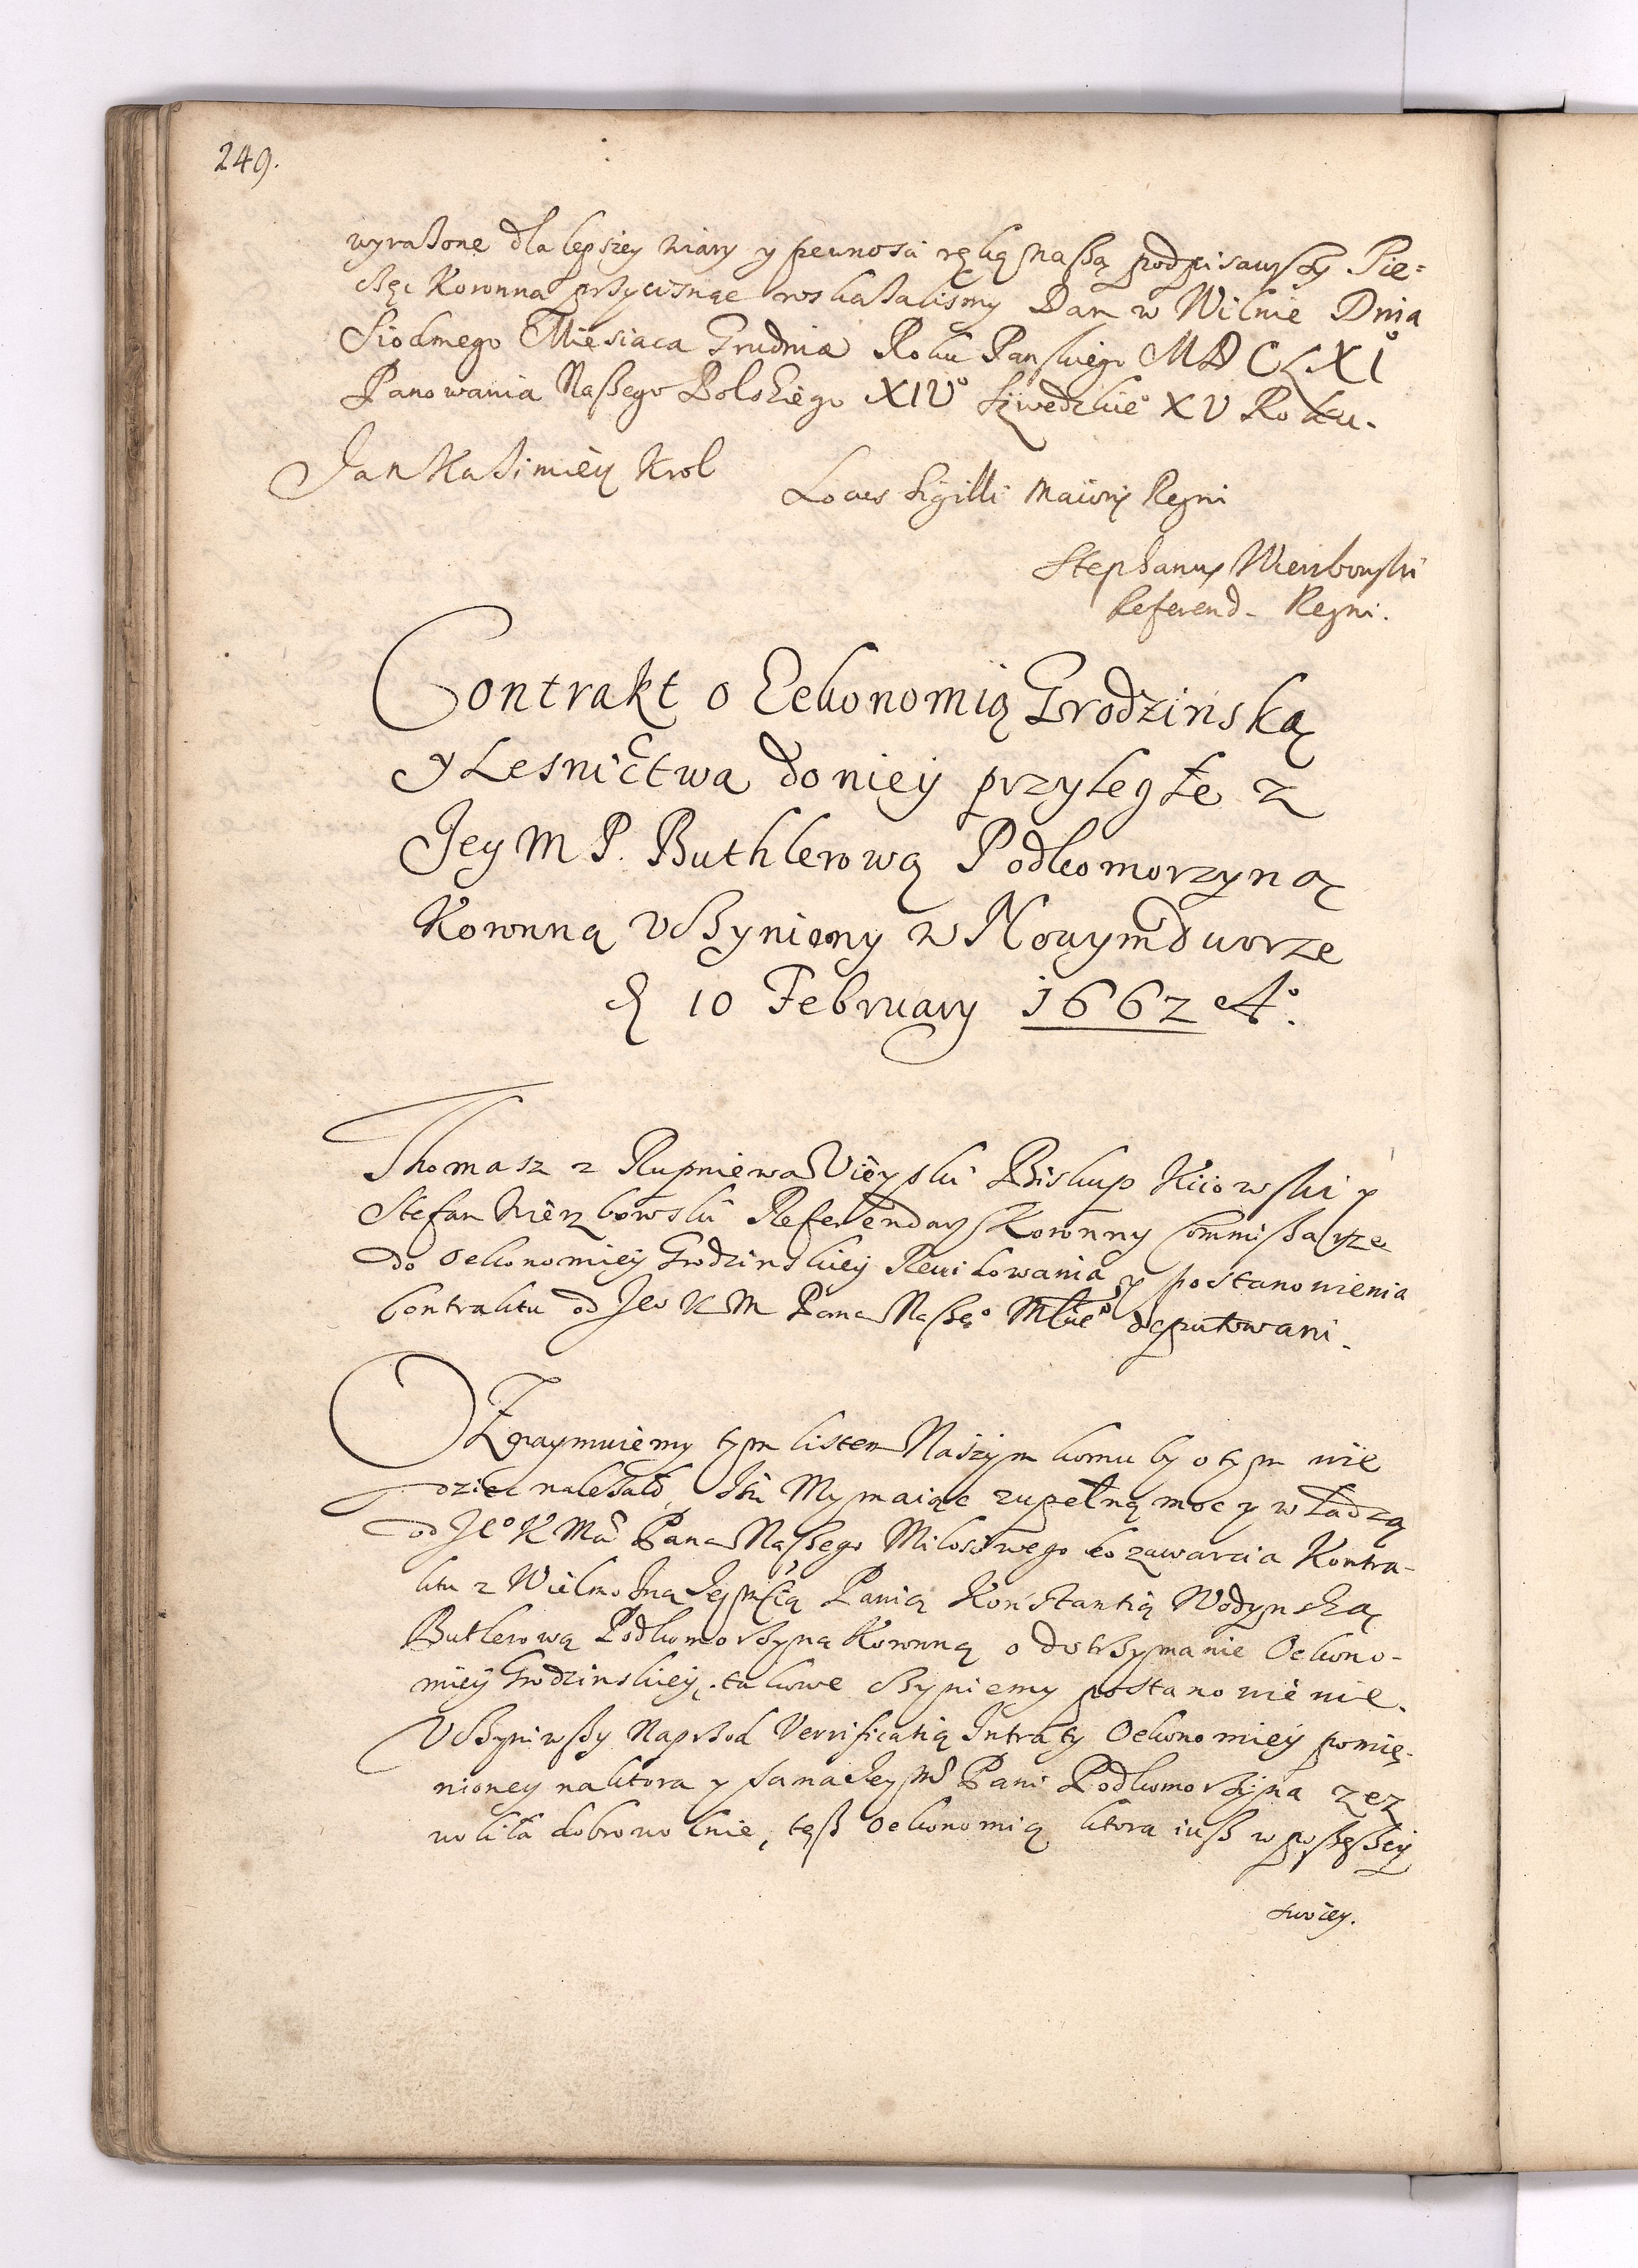 249.
wyrażone dla lepszey wiary y pewnosci ręką naszą podpisawszy Pie=
częc Koronną przycisnąc roskazalismy Dan w Wilnie Dnia
Siodmego Miesiaca Grudnia Roku Panskiego MDCLXIº
Panowania Naszego Polskiego XIVº Szwedzkieº XV Roku.
Jan Kazimierz Krol
Locus Sigilli Maioris Regni
Stephanus Wierzbowski
Referend. Regni.
Contrakt o Eekonomią Grodzinską
y Lesnictwa do niey przyległe z
Jey M P. Buthlerową Podkomorzyną
Koronną uczyniony w Nowymdworze
d 10 February 1662 Aº.
Thomasz z Rupniewa Vieyski Biskup Kiiowski y
Stefan Wierzbowski Referendarz Koronny Commissarze
do Oekonomiey Grodzinskiey Rewidowania y postanowienia
Contraktu od Jeº K M Pana Naszeº Młueº deputowani.
Oznaymuiemy tym listem Naszym komu by o tym wie
dziec nalezało, Iż My maiąc zupełną moc y władzą
od Jeº K Mci Pana Naszego Milosciwego do zawarcia Kontra-
ktu z Wielmożną Jeymcią Panią Konstantią Wodynską
Butlerową Podkomorzyną Koronną o dotrzymanie Oekono-
miey Grodzinskiey, takowe czyniemy postanowienie.
Uczyniwszy naprzod Verificatią Intraty Oekonomiey pomie-
nioney na ktora y sama Jey Mć Pani Podkomorzyna zez
woliła dobrowolnie, tęsz Oekonomią ktora iusz w possessiey
swoiey.